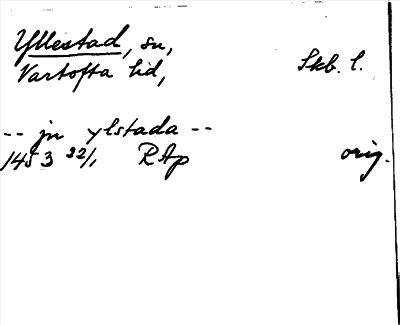 Yllestad, sn,
Vartofta hd, Skb. l.
-- jn ylstada --
1453 22/1 RAp orig.